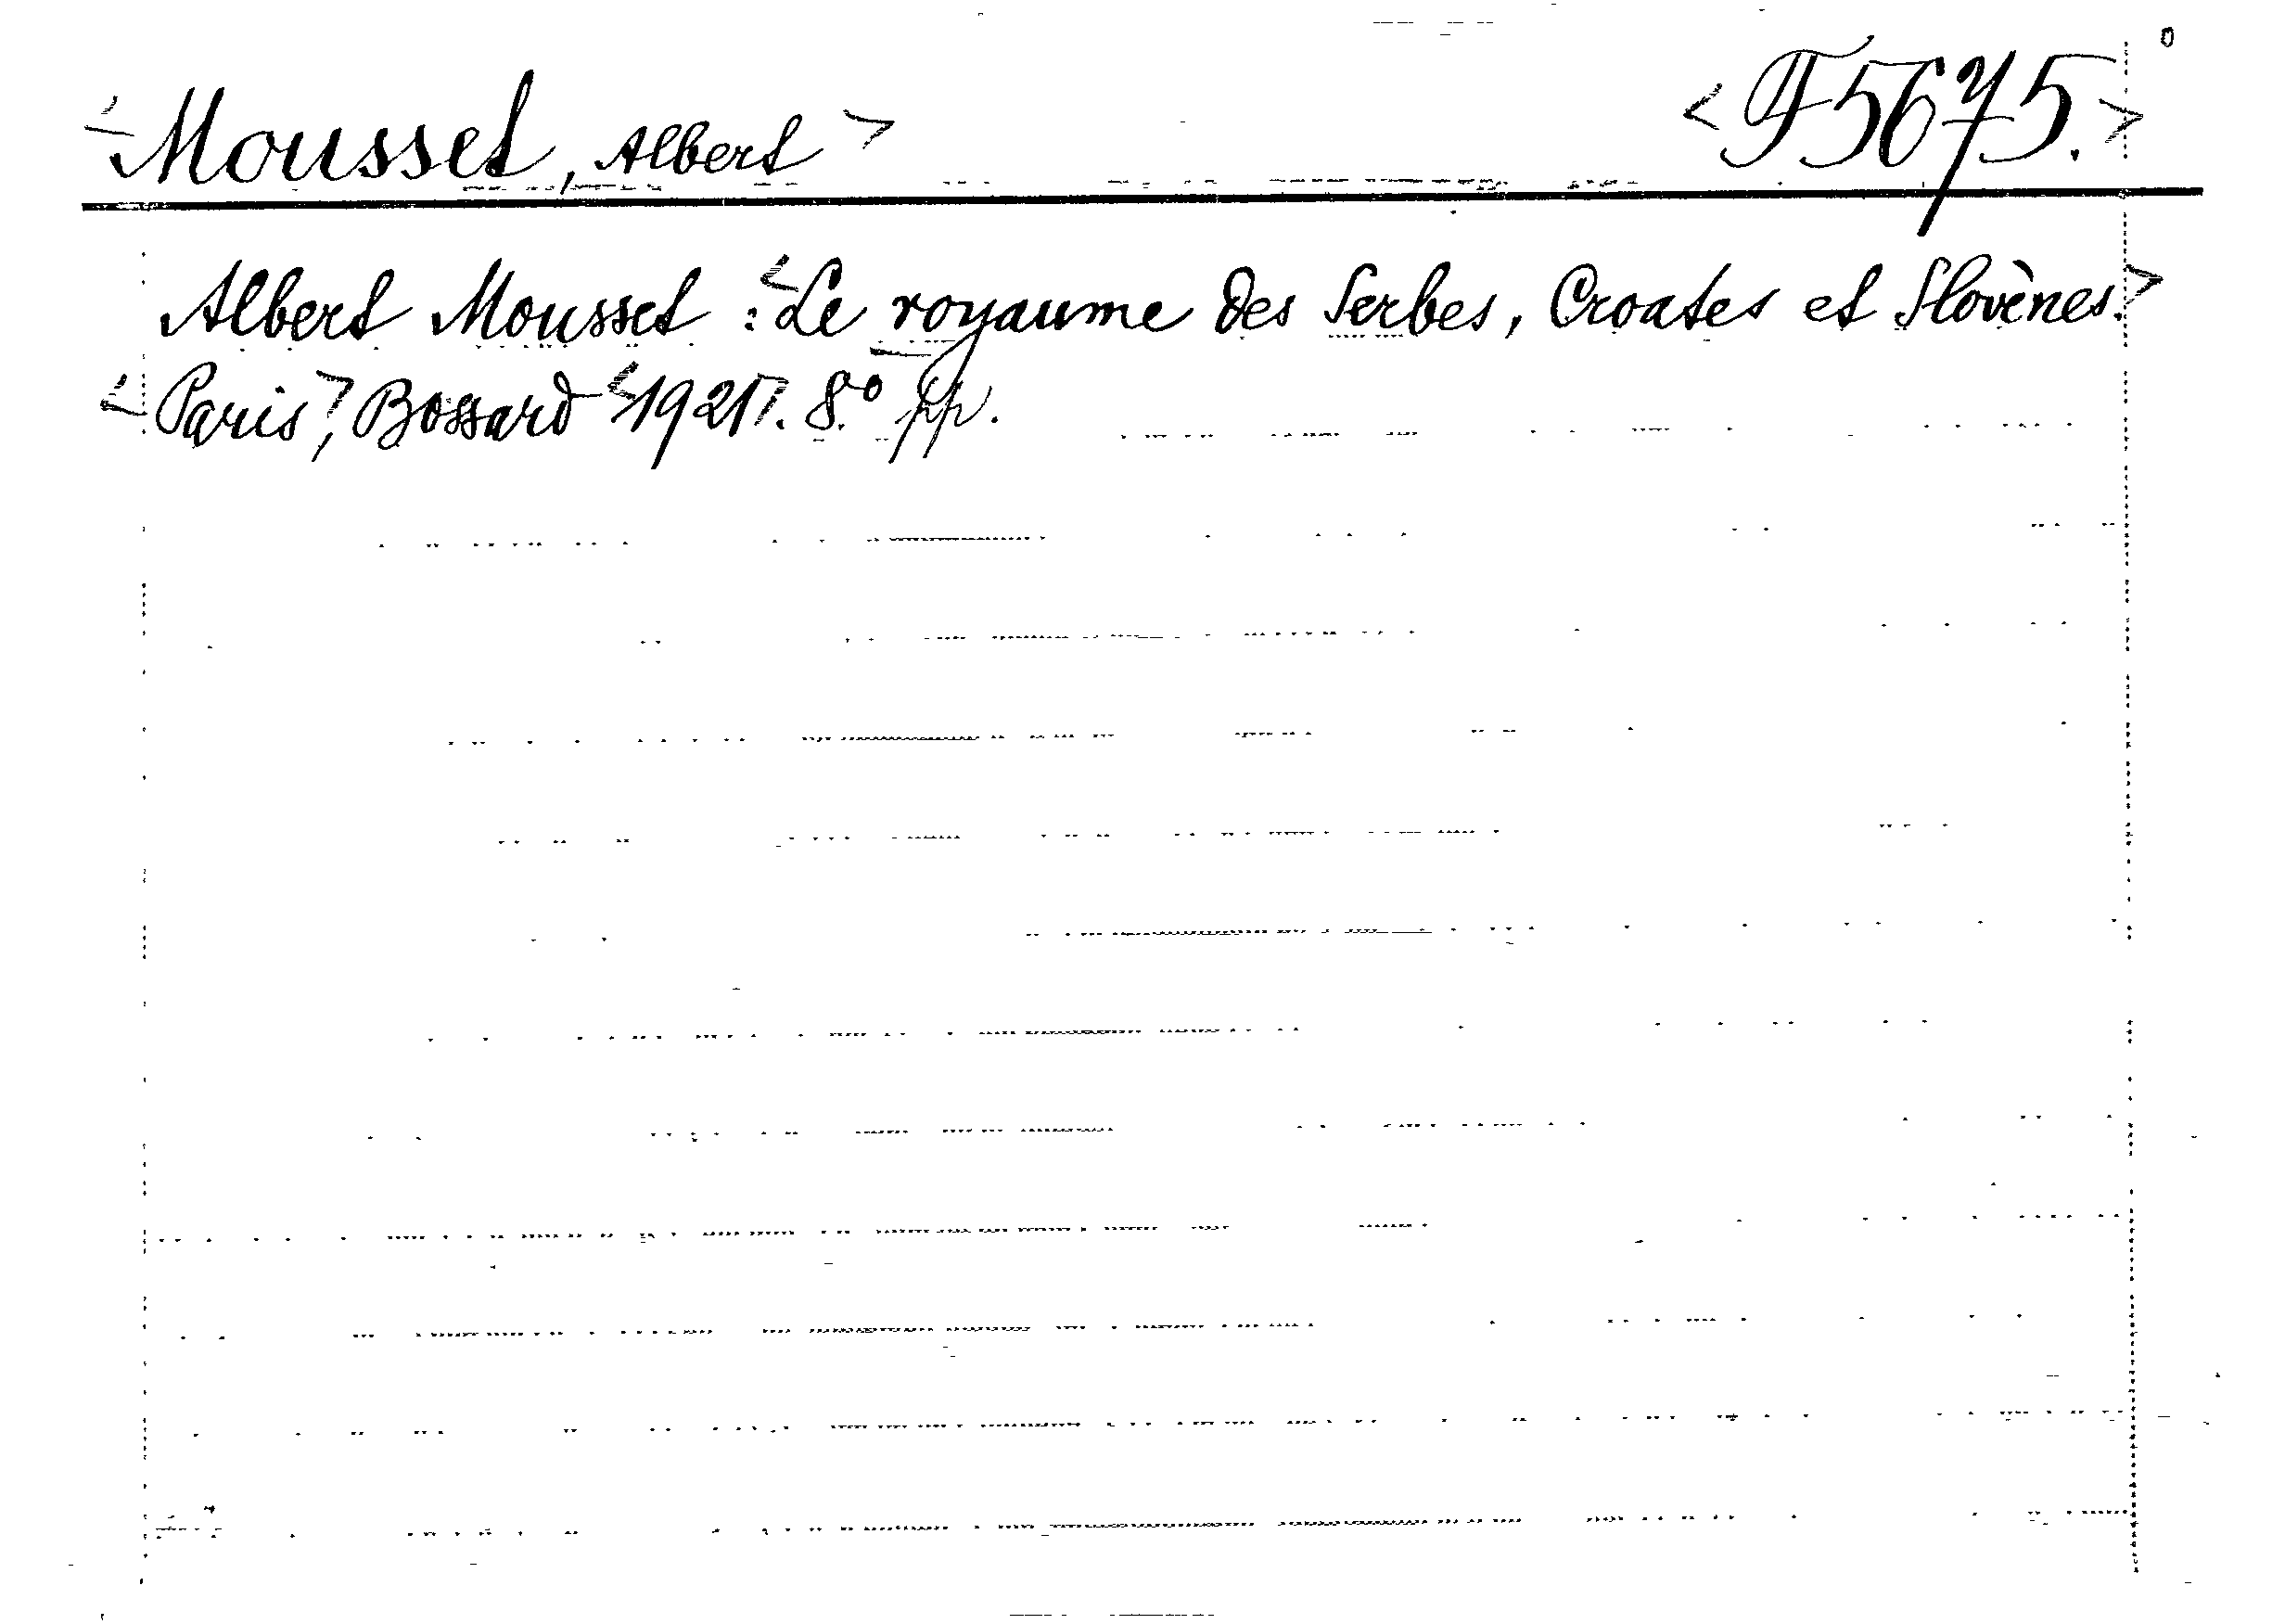 <Mousset, Albert> <F5675.>
Albert Mousset: <Le royaume des Serbes, Croates et Slovènes.>
<Paris>, Bossard <1921>. 8.º pp.